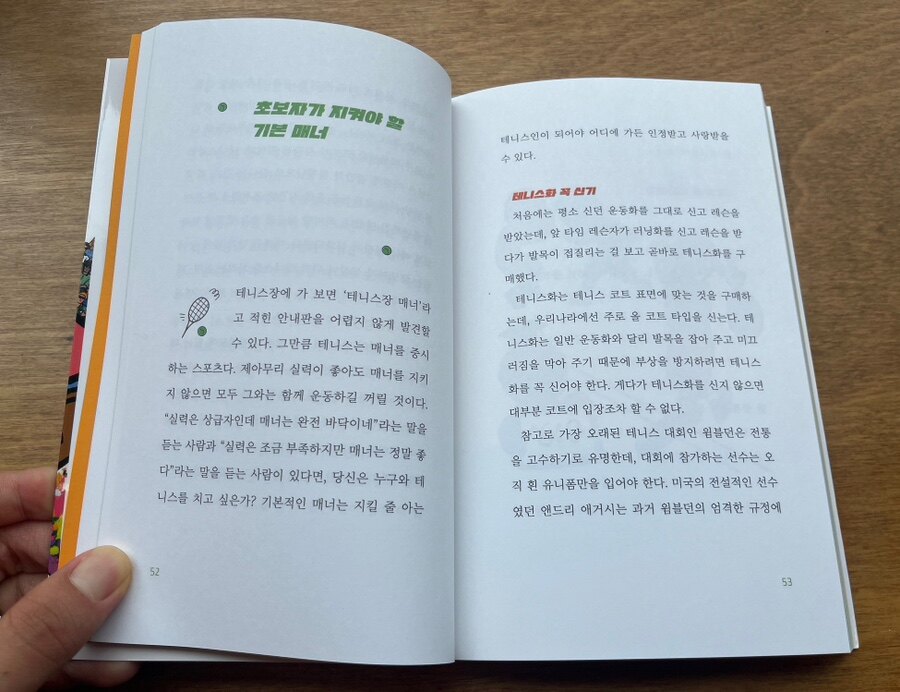 초보자가 지켜야 할
기본 매너
테니스장에 가 보면 ‘테니스장 매너’라
고 적힌 안내판을 어렵지 않게 발견할
수 있다. 그만큼 테니스는 매너를 중시
하는 스포츠다. 제아무리 실력이 좋아도 매너를 지키
지 않으면 모두 그와는 함께 운동하길 꺼릴 것이다.
“실력은 상급자인데 매너는 완전 바닥이네”라는 말을
듣는 사람과 “실력은 조금 부족하지만 매너는 정말 좋
다”라는 말을 듣는 사람이 있다면, 당신은 누구와 테
니스를 치고 싶은가? 기본적인 매너는 지킬 줄 아는
52
테니스인이 되어야 어디에 가든 인정받고 사랑받을
수 있다.
테니스화 꼭 신기
처음에는 평소 신던 운동화를 그대로 신고 레슨을
받았는데, 앞 타임 레슨자가 러닝화를 신고 레슨을 받
다가 발목이 접질리는 걸 보고 곧바로 테니스화를 구
매했다.
테니스화는 테니스 코트 표면에 맞는 것을 구매하
는데, 우리나라에선 주로 올 코트 타입을 신는다. 테
니스화는 일반 운동화와 달리 발목을 잡아 주고 미끄
러짐을 막아 주기 때문에 부상을 방지하려면 테니스
화를 꼭 신어야 한다. 게다가 테니스화를 신지 않으면
대부분 코트에 입장조차 할 수 없다.
참고로 가장 오래된 테니스 대회인 윔블던은 전통
을 고수하기로 유명한데, 대회에 참가하는 선수는 오
직 흰 유니폼만을 입어야 한다. 미국의 전설적인 선수
였던 앤드리 애거시는 과거 윔블던의 엄격한 규정에
53